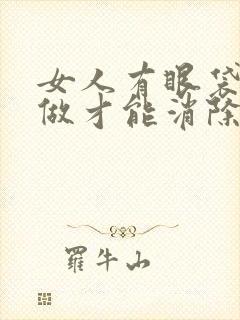 女人有眼袋
做才能消除
羅牛山